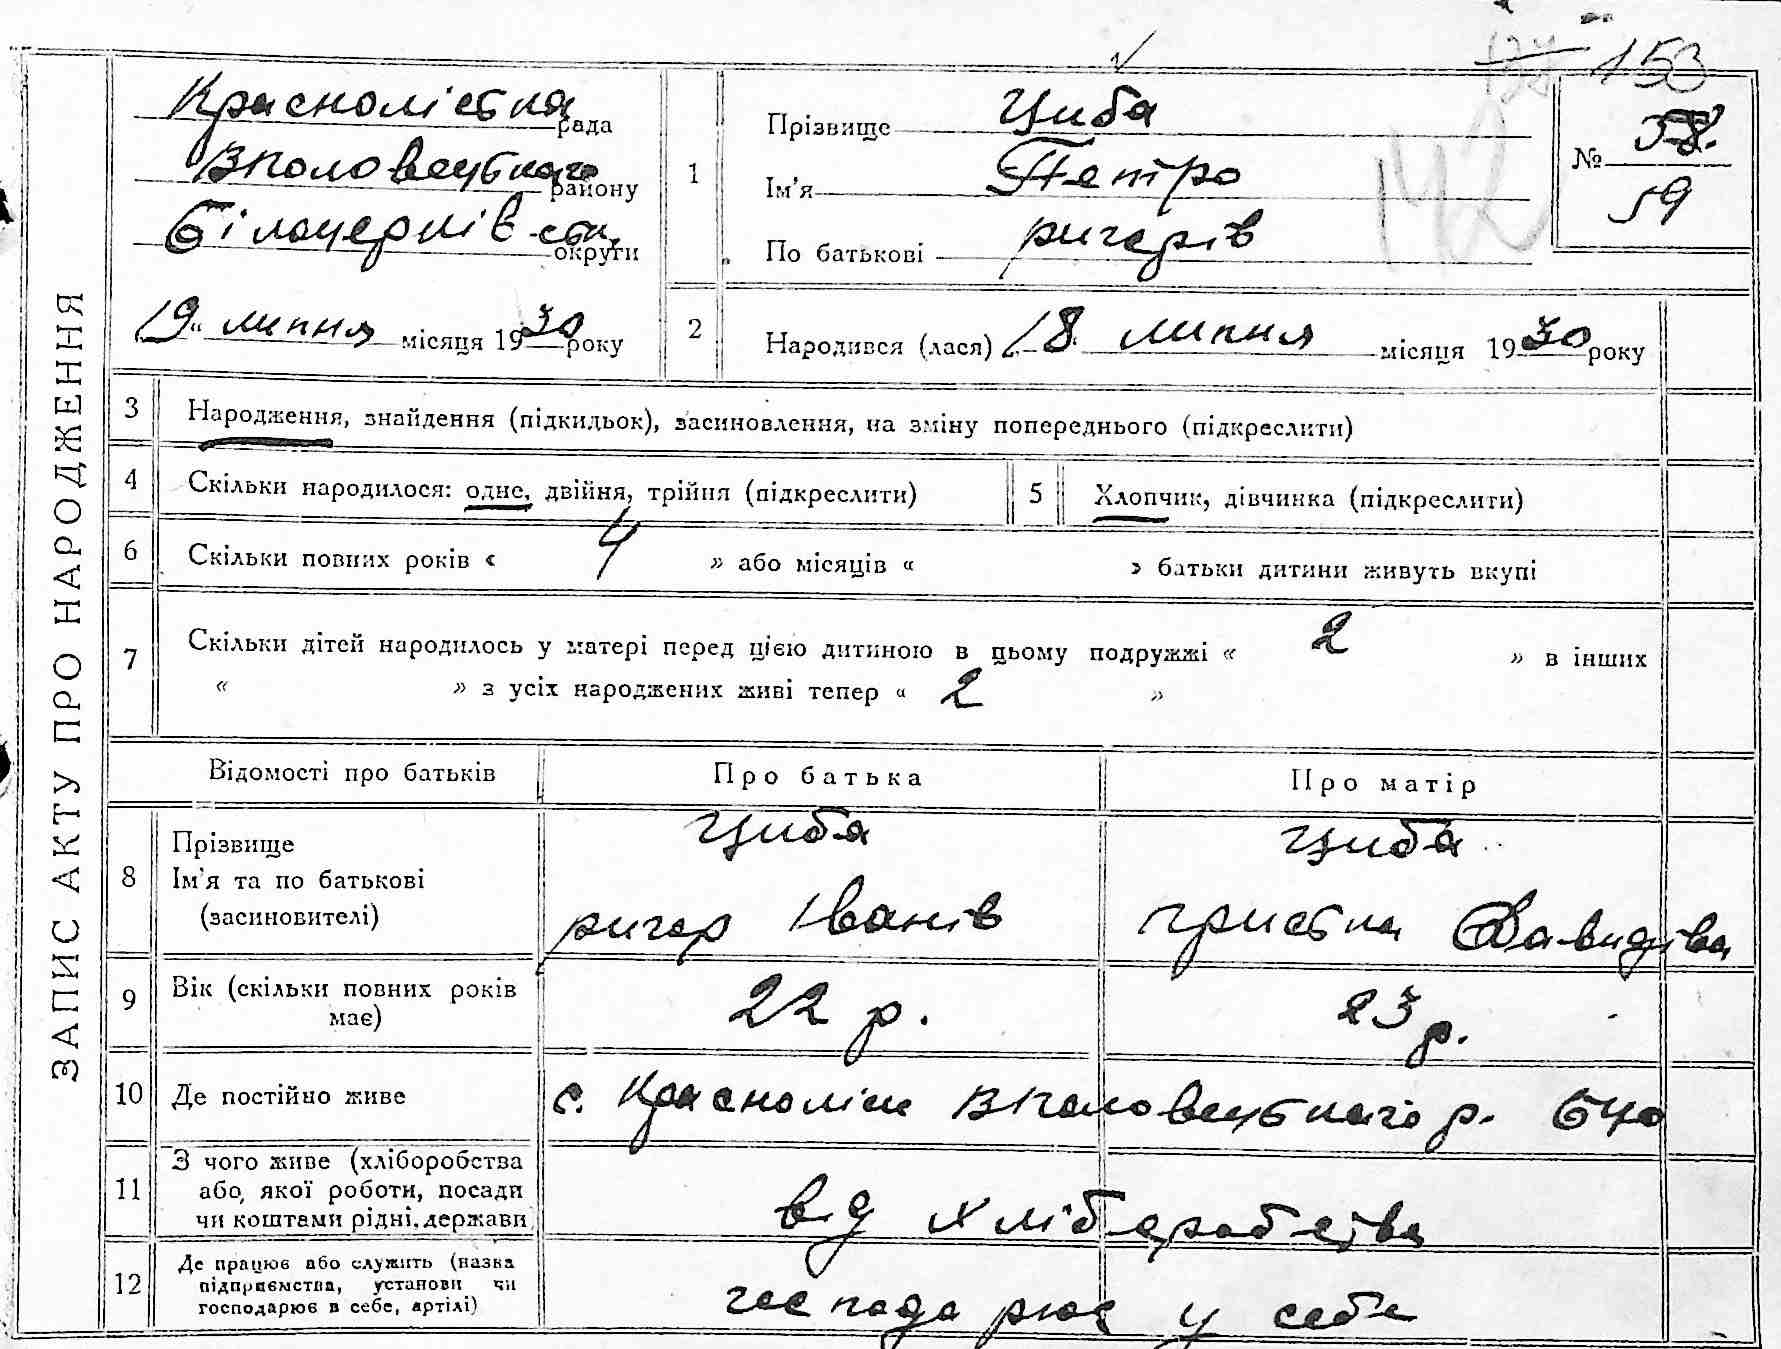 153
Краснолісська рада
Вполовецького району
Білоцерків-ськ. округи
19 " липня місяця 1930 року
1
Прізвище Циба
Ім'я Петро
По батькові ригорів
142
№ 58.
59
2
Народився (лася) 18 липня місяця 1930 року
ЗАПИС АКТУ ПРО НАРОДЖЕННЯ
3 Народження, знайдення (підкидьок), засиновлення, на зміну попереднього (підкреслити)
4 Скільки народилося: одне, двійня, трійня (підкреслити) 5 Хлопчик, дівчинка (підкреслити)
6 Скільки повних років « 4 » або місяців « » батьки дитини живуть вкупі
7 Скільки дітей народилось у матері перед цією дитиною в цьому подружжі « 2 » в інших
« » з усіх народжених живі тепер « 2 »
Відомості про батьків Про батька Про матір
8 Прізвище Циба Циба
Ім'я та по батькові
(засиновителі) ригор Іванів Христка Давидівва
9 Вік (скільки повних років
має) 22 р. 23 р.
10 Де постійно живе с. Краснолісе Вполовецького р. БЦО
11 З чого живе (хліборобства
або, якої роботи, посади
чи коштами рідні, держави) від хліборобства
12 Де працює або служить (назва
підприємства, установи чи
господарює в себе, артілі) господарює у себе